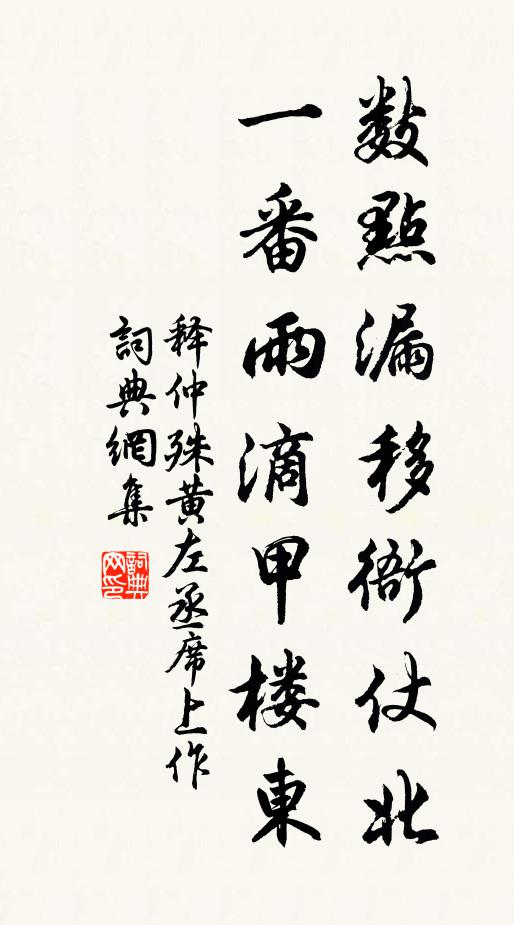 数點漏移衙仗北
一番雨滴甲楼東
释仲殊黄左丞席上作
詞典網集
詞典网印